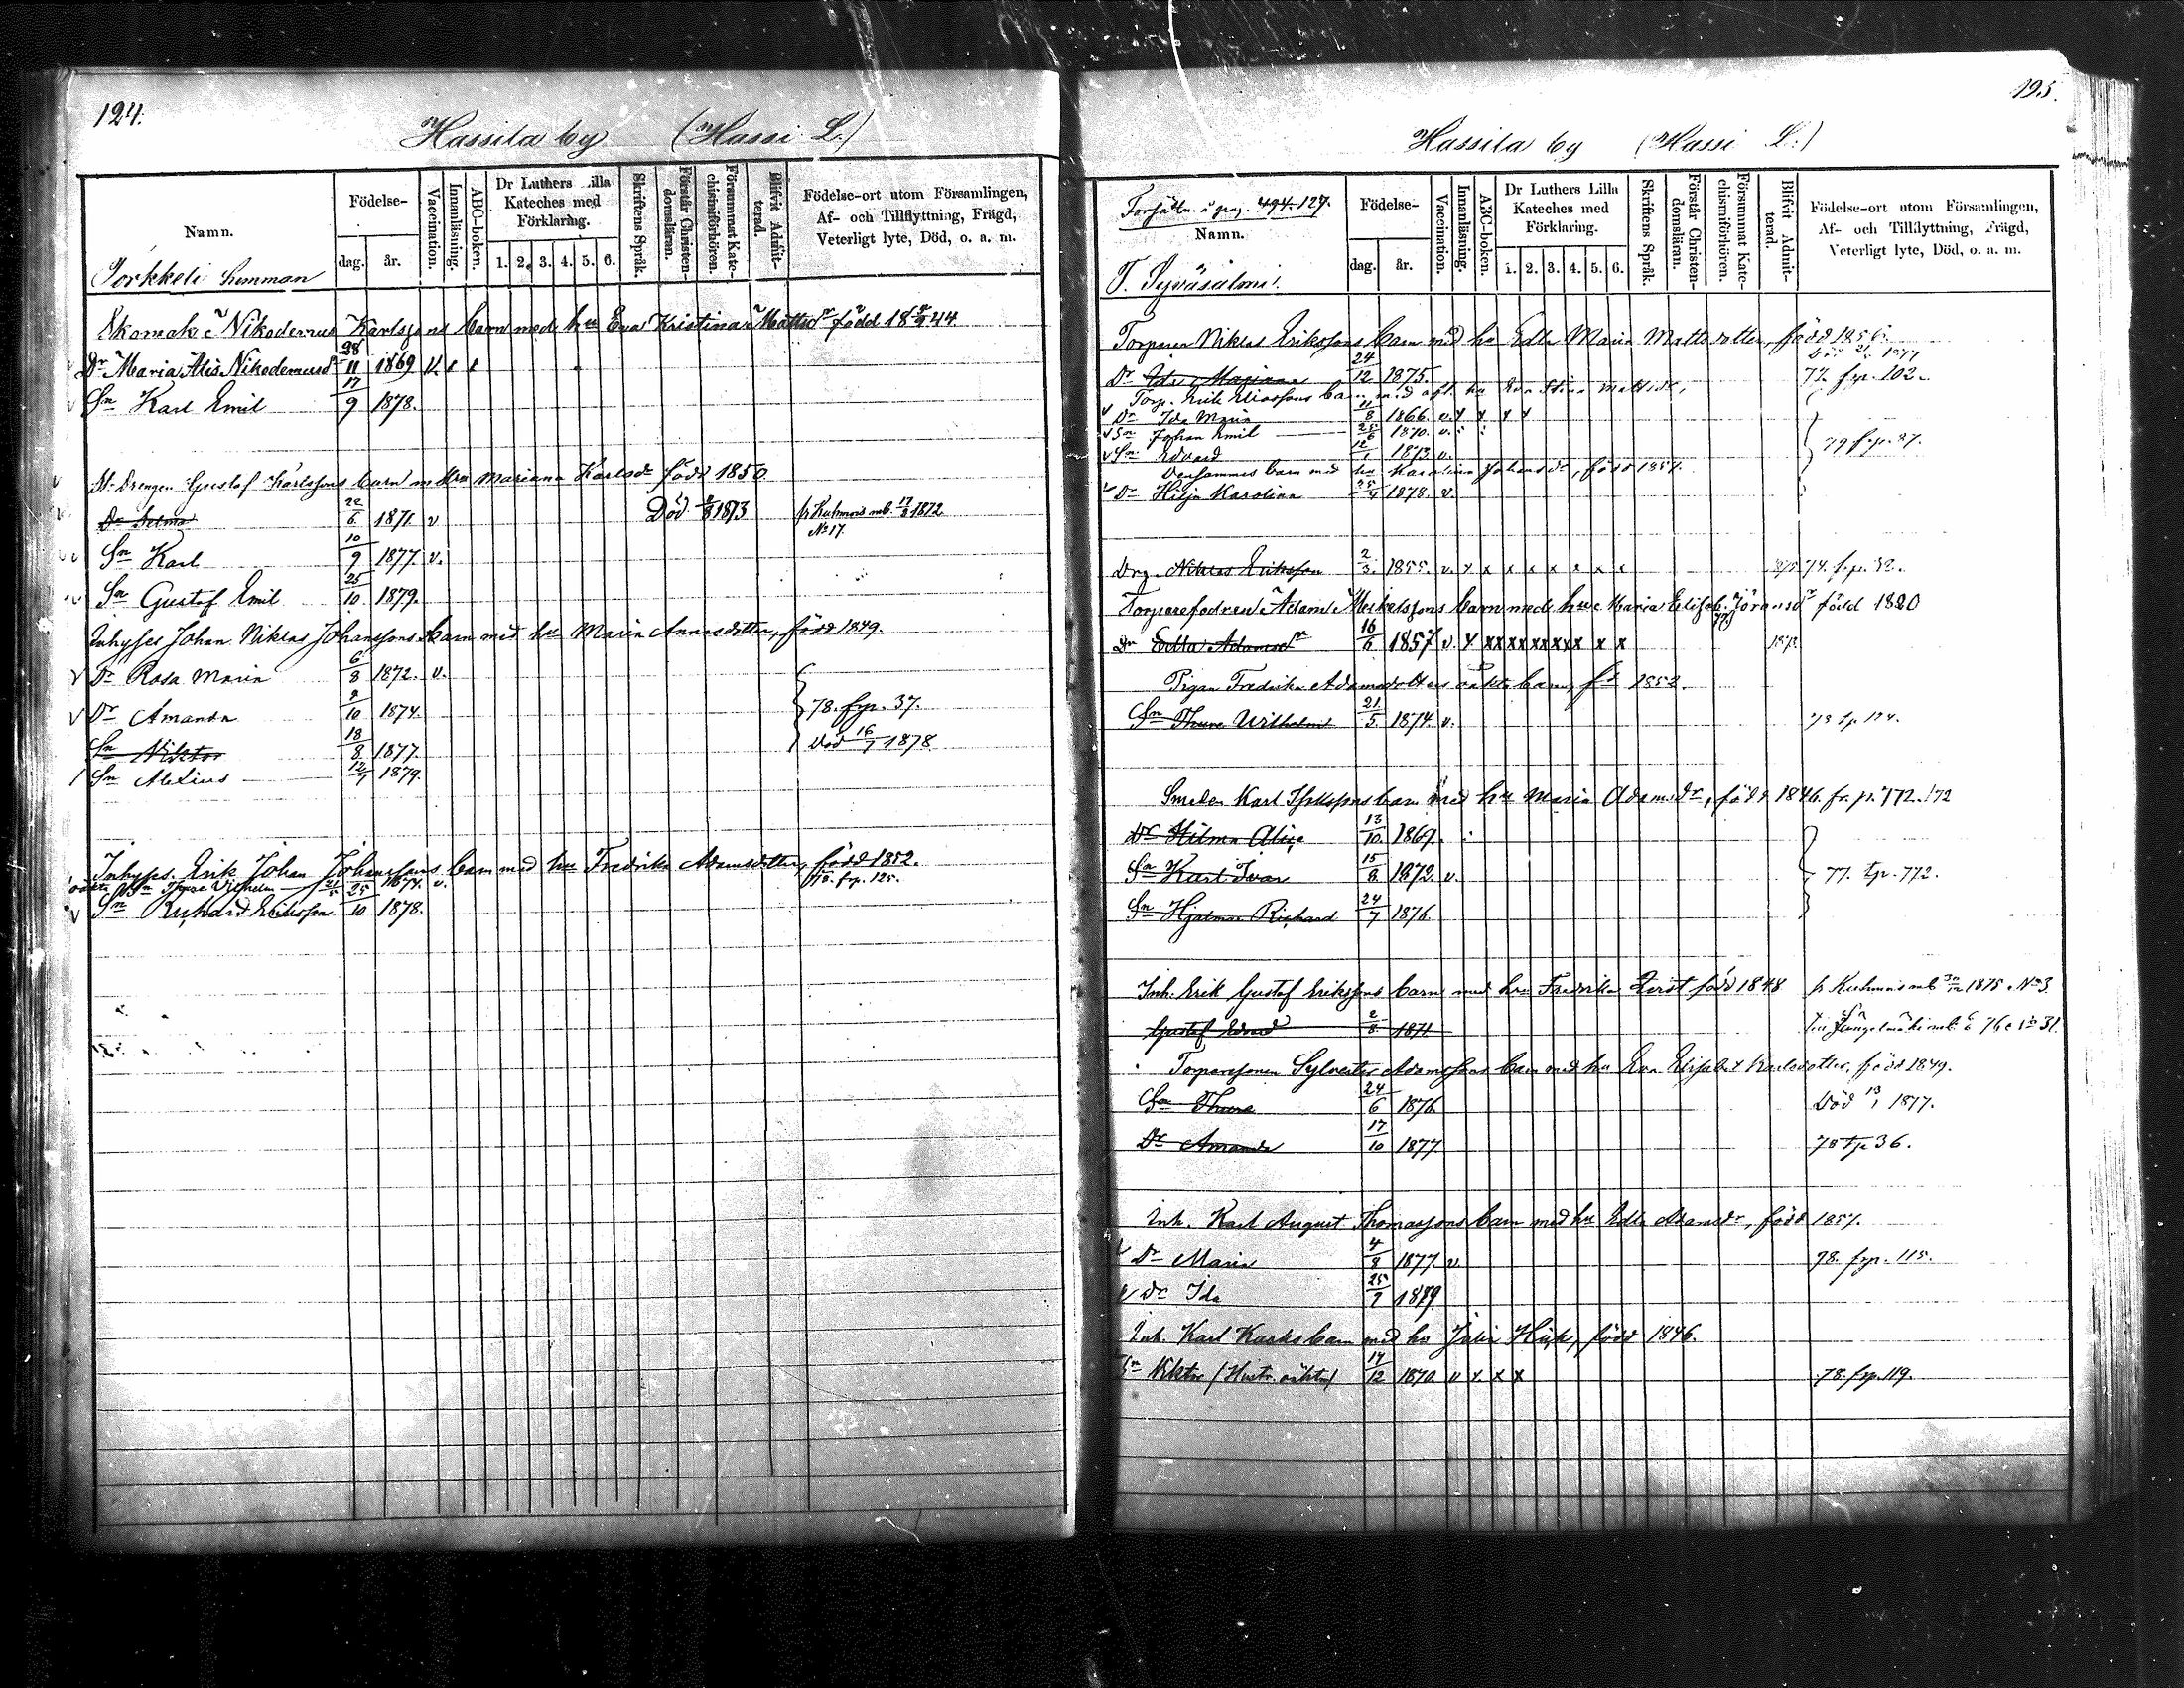 124.
Hassila by (Hassi L.)
Namn.
Födelse-
dag.
år.
Vaccination.
Innanläsning.
ABC-boken.
Dr Luthers Lilla Kateches med Förklaring.
1. 2. 3. 4. 5. 6.
Skriftens Språk.
Förstår Christendomsläran.
Försummat Katechismiförhören.
Blifvit Admitterad.
Födelse-ort utom Församlingen,
Af- och Tillflyttning, Frägd,
Veterligt lyte, Död, o. a. m.
Torkkeli hemman
Skomak Nikodemus Karlssons barn med hu Eva Kristina Mattsdr född 18 44.
Dr Maria Alis Nikodemusdr 28/11 1869 v.
Sn Karl Emil 17/9 1878.
Drengen Gustaf Karlssons barn m hu Mariana Karlsdr född 1850
Dr Selma 22/6 1871 v Död 1873 fr Kuhmois mb. 1872 No 17.
Sn Karl 10/9 1877. v.
Sn Gustaf Emil 25/10 1879.
Inhyses Johan Niklas Johanssons barn med hu Maria Annasdotter, född 1849.
Dr Rosa Maria 6/8 1872. v.
Dr Amanda 2/10 1874. 78. frp. 37.
Sn Viktor 18/8 1877. Död 16/7 1878.
Sn Alexius 12/7 1879.
Inhyses. Erik Johan Johanssons barn med hu Fredrika Adamsdotter, född 1852.
oäkta Sn Thure Vilhelm 21/5 1874. v. 78. frp. 125.
Sn Richard Eriksson 25/10 1878.
125.
Hassila by (Hassi L.)
Namn.
Födelse-
dag.
år.
Vaccination.
Innanläsning.
ABC-boken.
Dr Luthers Lilla Kateches med Förklaring.
1. 2. 3. 4. 5. 6.
Skriftens Språk.
Förstår Christendomsläran.
Försummat Katechismiförhören.
Blifvit Admitterad.
Födelse-ort utom Församlingen,
Af- och Tillflyttning, Frägd,
Veterligt lyte, Död, o. a. m.
T. Syväsalmi.
Torparen Niklas Erikssons barn med hu Edla Maria Mattsdotter, född 1856.
Dr Ida Mariana 24/12 1875. 1877
77. frp. 102.
Torp. Erik Eliassons barn med afl. hu Eva Stina Mattsdr,
Dr Ida Maria 11/8 1866. v. x x x x
Sn Johan Emil 25/6 1870. v.
Sn Edvard 12/1 1873 v. 79 frp. 87.
Densammes barn med hu Karolina Johansdr, född 1857.
Dr Hilja Karolina 25/4 1878. v.
Drg. Niklas Eriksson 2/3. 1855. v. x x x x x x x x 74. frp. 32.
Torparefadren Adam Mickelssons barn med hu Maria Elisab. Göransdr född 1820
Dr Edla Adamsdr 16/6 1857 v. x x x x x x x x x x x
Pigan Fredrika Adamsdotters oäkta barn, fd 1852.
Sn Thure Wilhelm 21/5 1874. v. 78 tp 124.
Smeden Karl barn med hu Maria Adamsdr, född 1846. fr. p. 772.
Dr Hilma Alice 13/10 1869.
Sn Karl Ivar 15/8 1872. v. 77. tp. 772.
Sn Hjalmar Richard 24/7 1876.
Inh. Erik Gustaf Erikssons barn med hu Fredrika född 1848 fr Kuhmois mb 1875 No 3.
Gustaf Edvard 2/8 1871
Torparesonen Sylvester Adamssons barn med hu Eva Elisabet Karlsdotter, född 1849.
Sn Thure 24/6 1876 Död 13/1 1877.
Dr Amanda 17/10 1877 78 tp 36.
Inh. Karl August Thomassons barn med hu Edla Adamsdr, född 1857.
Dr Maria 4/8 1877 v. 78. frp. 115.
Dr Ida 25/7 1879
Inh. Karl Karls barn med hu född 1846.
Sn Viktor (Hustr. oäkta) 14/12 1870 v x x x 78. frp. 119.